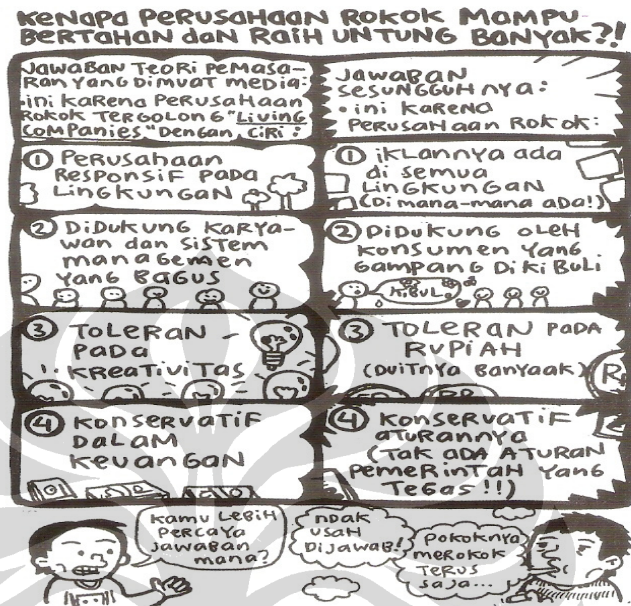 KENAPA PERUSAHAAN ROKOK MAMPU
BERTAHAN DAN RAIH UNTUNG BANYAK?!
JAWABAN TEORI PEMASA-
RAN YANG DIMUAT MEDIA:
•INI KARENA PERUSAHAAN
ROKOK TERGOLONG "LIVING
COMPANIES" DENGAN CIRI:
① PERUSAHAAN
RESPONSIF PADA
LINGKUNGAN
② DIDUKUNG KARYA-
WAN DAN SISTEM
MANAGEMEN
YANG BAGUS
③ TOLERAN -
PADA
KREATIVITAS
④ KONSERVATIF
DALAM
KEUANGAN
JAWABAN
SESUNGGUHNYA:
• INI KARENA
PERUSAHAAN ROKOK:
① IKLANNYA ADA
DI SEMUA
LINGKUNGAN
(DIMANA-MANA ADA!)
② DIDUKUNG OLEH
KONSUMEN YANG
GAMPANG DIKIBULI
KIBUL
③ TOLERAN PADA
RUPIAH
(DUITNYA BANYAAK)
R
④ KONSERVATIF
ATURANNYA
(TAK ADA ATURAN
PEMERINTAH YANG
TEGAS!!)
KAMU LEBIH
PERCAYA
JAWABAN
MANA?
NDAK
USAH
DIJAWAB!
POKOKNYA
MEROKOK
TERUS
SAJA...